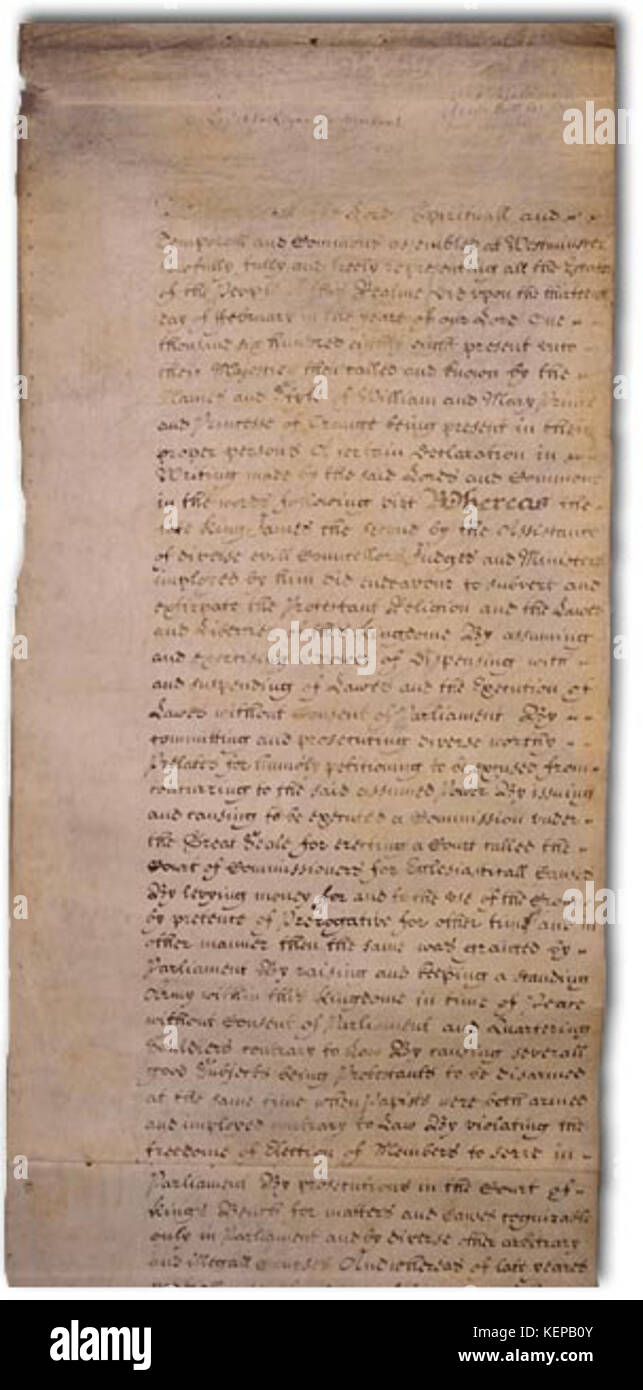 Lords Spirituall and
Temporall and Commons assembled at Westminster
lawfully fully and freely representing all the Estates
of the People of this Realme did upon the thirteenth
day of February in the yeare of our Lord One
thousand six hundred eighty eight present unto
their Majesties then called and known by the
Names and Stile of William and Mary Prince
and Princesse of Orange being present in their
proper persons A certain Declaration in
Writing made by the said Lords and Commons
in the words following vizt Whereas the
late King James the second by the Assistance
of diverse evill Councellors Judges and Ministers
imployed by him did endeavour to subvert and
extirpate the Protestant Religion and the Lawes
and Liberties of this Kingdome By assuming
and exercising a Power of Dispensing with
and suspending of Lawes and the Execution of
Lawes without Consent of Parliament By
committing and prosecuting diverse worthy
Prelates for humbly petitioning to be excused from
concurring to the said assumed Power By issuing
and causing to be executed a Commission under
the Great Seale for erecting a Court called the
Court of Commissioners for Ecclesiasticall Causes
By levying money for and to the use of the Crowne
by pretence of Prerogative for other time and in
other manner then the same was granted by
Parliament By raising and keeping a standing
Army within this Kingdome in time of Peace
without Consent of Parliament and Quartering
Souldiers contrary to Law By causing severall
good Subjects being Protestants to be disarmed
at the same time when Papists were both armed
and imployed contrary to Law By violating the
freedome of Election of Members to serve in
Parliament By prosecutions in the Court of
Kings Bench for matters and Causes cognizable
only in Parliament and by diverse other arbitrary
and illegall courses And whereas of late yeares
alamy
Image ID: KEPB0Y
www.alamy.com